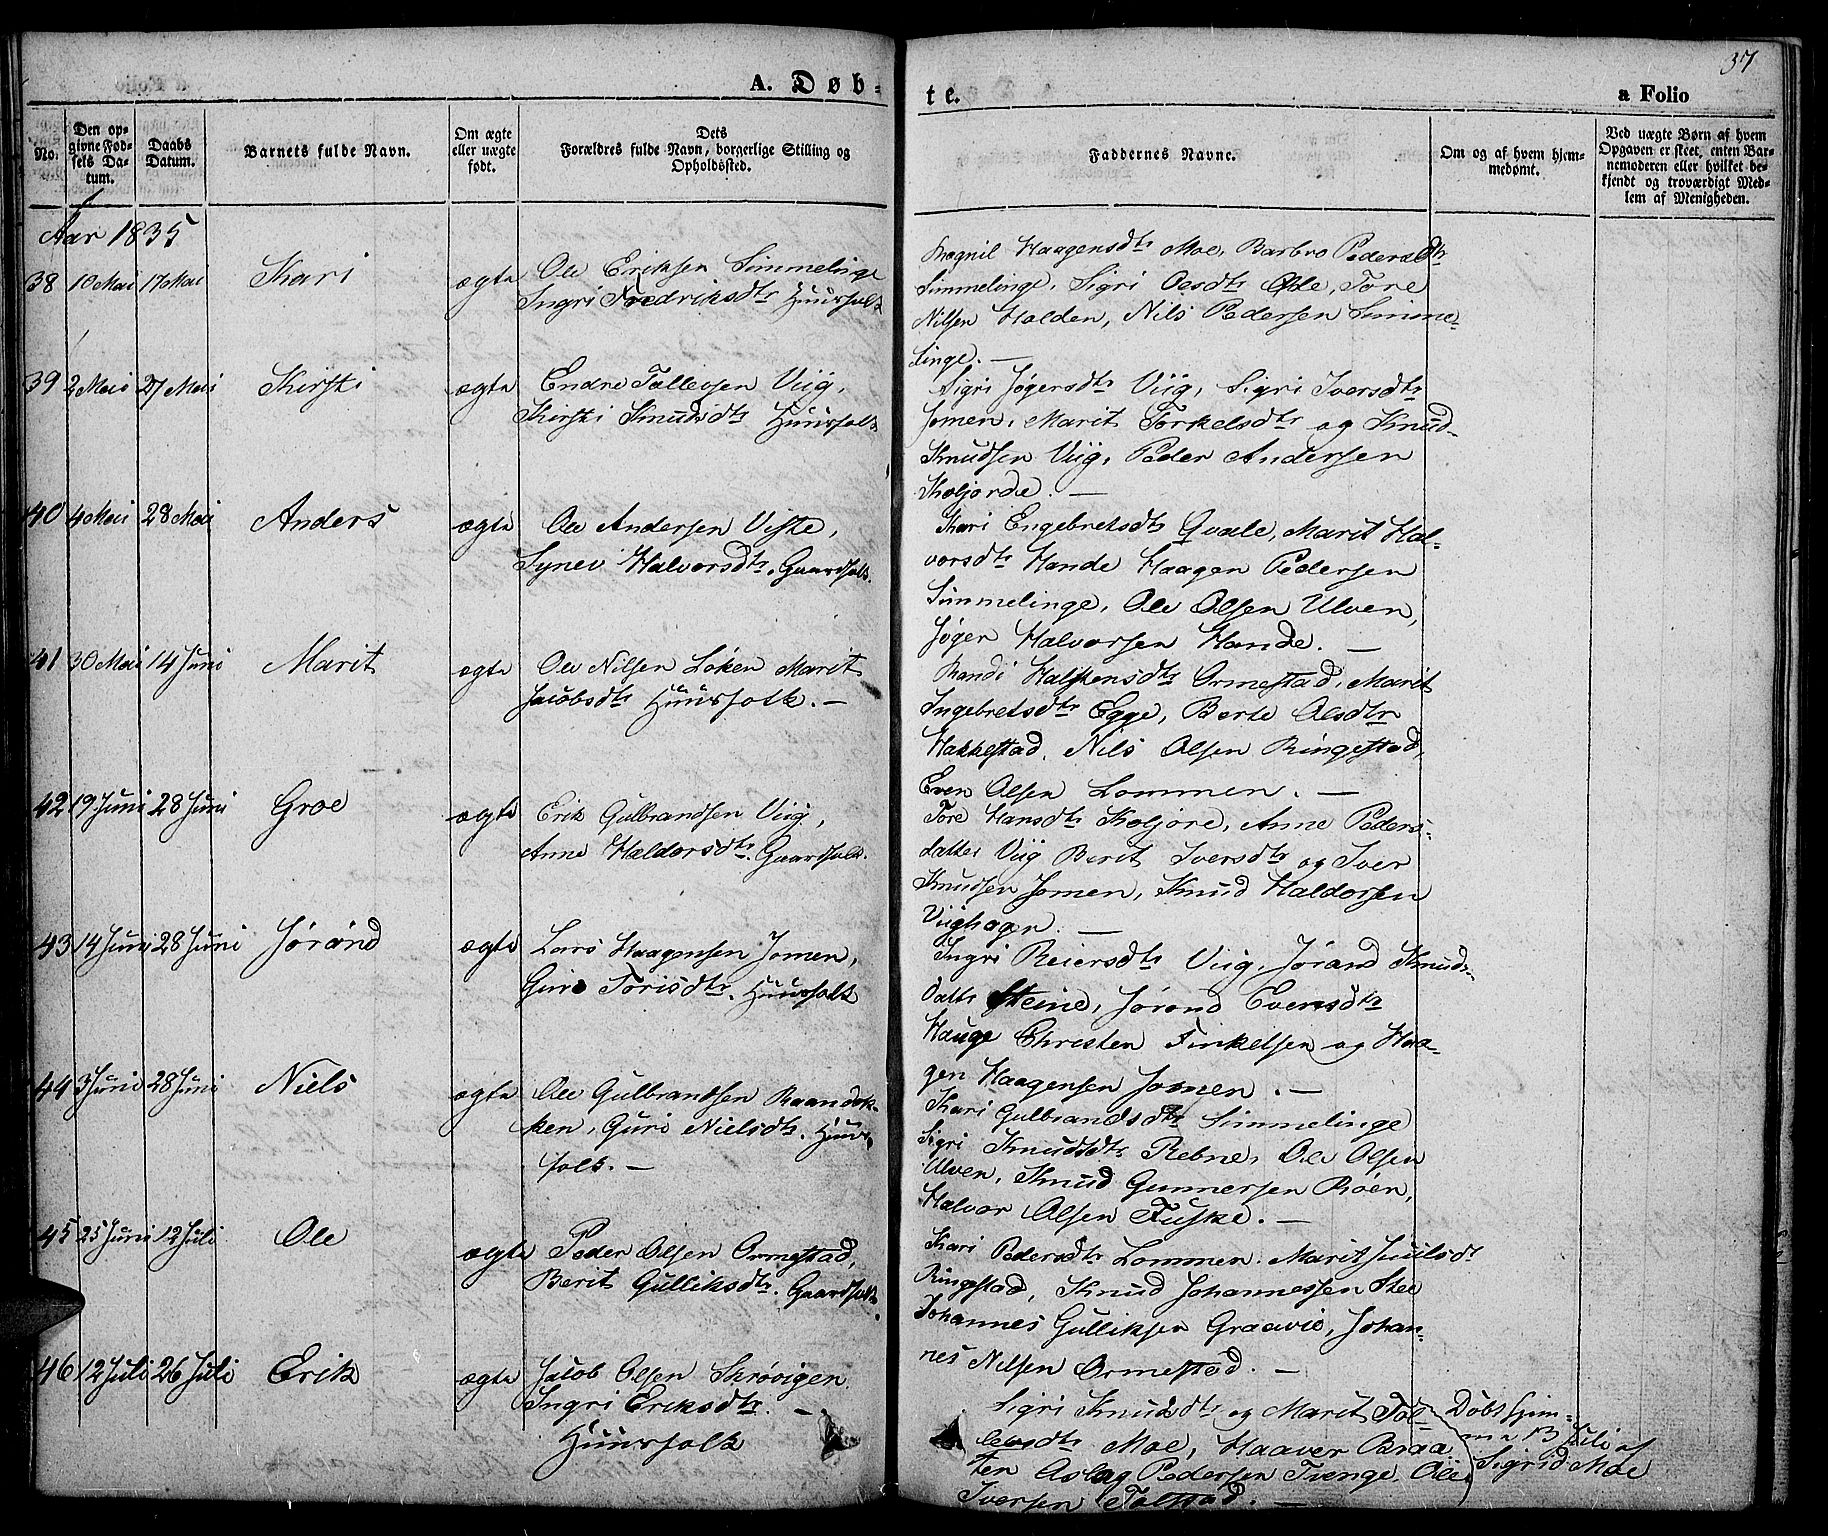 37
A. Døb-
te.
a Folio
No.
Den op-
givne Fød-
sels Da-
tum.
Daabs
Datum.
Barnets fulde Navn.
Om ægte
eller uægte
født.
Dets
Forældres fulde Navn, borgerlige Stilling og
Opholdssted.
Faddernes Navne.
Om og af hvem hjem-
medømt.
Ved uægte Børn af hvem
Opgaven er skeet, enten Bar-
nemoderen eller hvilket be-
kjendt og troværdigt Med-
lem af Menigheden.
Aar 1835
38 10 Mai 17 Mai Kari ægte Ole Eriksen Simmelinge
Ingri Fredriksdtr Huusfolk
Ragnil Haagensdtr Moe, Barbro Pedersdtr
Simmelinge, Sigri Olesdtr Øde, Tore
Nilsen Halden, Nils Pedersen Simme-
linge. —
39 2 Mai 27 Mai Kirsti ægte Endre Tollevsen Viig,
Kirsti Knudsdtr Huusfolk
Sigri Jøgersdtr Viig, Sigri Iversdtr
Jomen, Marit Torkelsdtr og Knud
Knudsen Viig, Peder Andersen
Koljorde. —
40 4 Mai 28 Mai Anders ægte Ole Andersen Viste,
Synev Halvorsdtr. Gaardfolk.
Kari Engebretsdtr Qvale, Marit Hal-
vorsdtr Hande Haagen Pedersen
Simmelinge, Ole Olsen Ulven,
Jøger Halvorsen Hande. —
41 30 Mai 14 Juni Marit ægte Ole Nilsen Løken Marit
Jacobsdtr Huusfolk. —
Randi Halstensdtr Ormestad, Marit
Ingebretsdtr Egge, Berte Olsdtr
Hakkestad, Nils Olsen Ringestad,
Even Olsen Lommen. —
42 19 Juni 28 Juni Groe ægte Erik Gulbrandsen Viig,
Anne Haldorsdtr. Gaardfolk.
Tore Hansdtr Koljore, Anne Peders-
datter Viig Berit Iversdtr og Iver
Knudsen Jomen, Knud Haldorsen
Viighagen. —
43 14 Juni 28 Juni Jørånd ægte Lars Haagensen Jomen,
Guro Torisdtr. Huusfolk
Ingri Reiersdtr Viig, Jørand Knuds-
datr Steine, Jørond Evensdtr
Hauge Christen Finkelsen og Haa-
gen Haagensen Jomen. —
44 3 Juni 28 Juni Niels ægte Ole Gulbrandsen Raandok-
ken, Guri Nielsdtr. Huus-
folk. —
Kari Gulbrandsdtr Simmelinge
Sigri Knudsdtr Rebne, Ole Olsen
Ulven, Knud Gunnersen Røen,
Halvor Olsen Fuske. —
45 25 Juni 12 Juli Ole ægte Peder Olsen Ormestad,
Berit Gulliksdtr. Gaardfolk.
Kari Pedersdtr Lommen. Marit Juulsdtr
Ringestad, Knud Johannessen Stee
Johannes Gulliksen Graavie, Johan-
nes Nilsen Ormestad. —
46 12 Juli 26 Juli Erik ægte Jacob Olsen Skrøvigen.
Ingri Eriksdtr. —
Huusfolk
Sigri Knudsdtr og Marit Tol-
levsdtr Moe, Haaver Braa
ten Aslag Pedersen Tvenge. Ole
Iversen Tolstad. —
Døbt hjem-
me 13 Juli af
Sigrid Moe